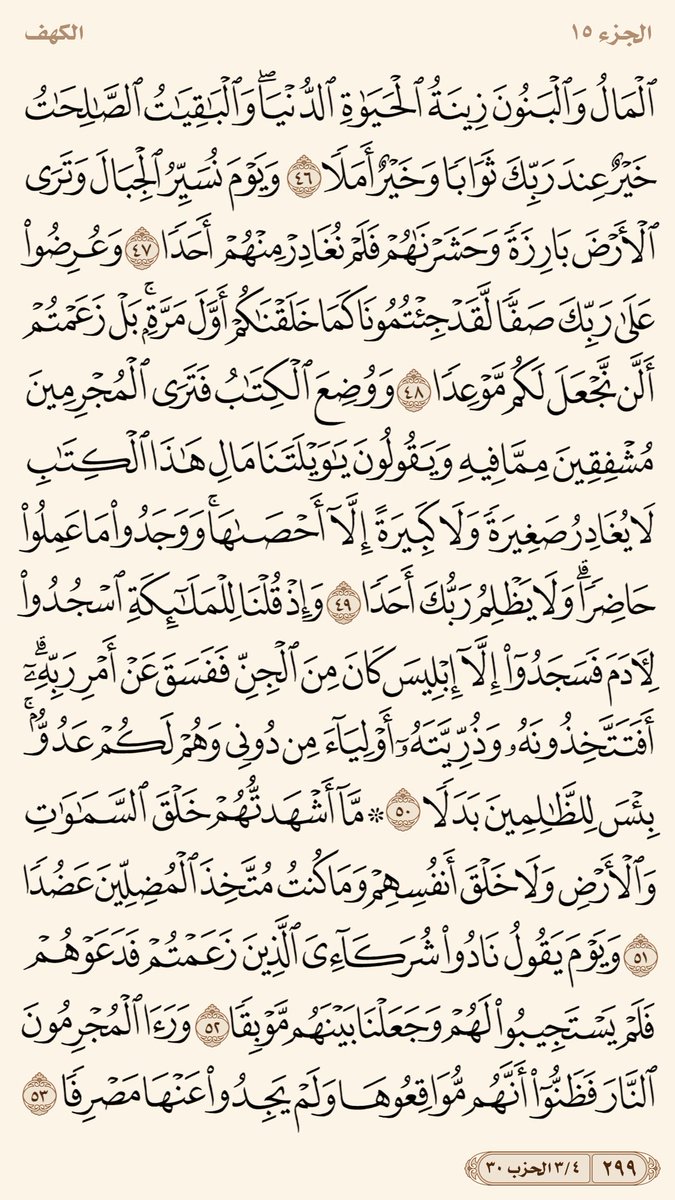 الجزء ١٥
الكهف
ٱلْمَالُ وَٱلْبَنُونَ زِينَةُ ٱلْحَيَوٰةِ ٱلدُّنْيَاۖ وَٱلْبَٰقِيَٰتُ ٱلصَّٰلِحَٰتُ
خَيْرٌ عِندَ رَبِّكَ ثَوَابًا وَخَيْرٌ أَمَلًا ٤٦ وَيَوْمَ نُسَيِّرُ ٱلْجِبَالَ وَتَرَى
ٱلْأَرْضَ بَارِزَةً وَحَشَرْنَٰهُمْ فَلَمْ نُغَادِرْ مِنْهُمْ أَحَدًا ٤٧ وَعُرِضُوا۟
عَلَىٰ رَبِّكَ صَفًّا لَّقَدْ جِئْتُمُونَا كَمَا خَلَقْنَٰكُمْ أَوَّلَ مَرَّةٍۭۚ بَلْ زَعَمْتُمْ
أَلَّن نَّجْعَلَ لَكُم مَّوْعِدًا ٤٨ وَوُضِعَ ٱلْكِتَٰبُ فَتَرَى ٱلْمُجْرِمِينَ
مُشْفِقِينَ مِمَّا فِيهِ وَيَقُولُونَ يَٰوَيْلَتَنَا مَالِ هَٰذَا ٱلْكِتَٰبِ
لَا يُغَادِرُ صَغِيرَةً وَلَا كَبِيرَةً إِلَّآ أَحْصَىٰهَاۚ وَوَجَدُوا۟ مَا عَمِلُوا۟
حَاضِرًاۗ وَلَا يَظْلِمُ رَبُّكَ أَحَدًا ٤٩ وَإِذْ قُلْنَا لِلْمَلَٰٓئِكَةِ ٱسْجُدُوا۟
لِءَادَمَ فَسَجَدُوٓا۟ إِلَّآ إِبْلِيسَ كَانَ مِنَ ٱلْجِنِّ فَفَسَقَ عَنْ أَمْرِ رَبِّهِۦٓۗ
أَفَتَتَّخِذُونَهُۥ وَذُرِّيَّتَهُۥٓ أَوْلِيَآءَ مِن دُونِى وَهُمْ لَكُمْ عَدُوُّۢۚ
بِئْسَ لِلظَّٰلِمِينَ بَدَلًا ٥٠ ۞ مَّآ أَشْهَدتُّهُمْ خَلْقَ ٱلسَّمَٰوَٰتِ
وَٱلْأَرْضِ وَلَا خَلْقَ أَنفُسِهِمْ وَمَا كُنتُ مُتَّخِذَ ٱلْمُضِلِّينَ عَضُدًا
٥١ وَيَوْمَ يَقُولُ نَادُوا۟ شُرَكَآءِىَ ٱلَّذِينَ زَعَمْتُمْ فَدَعَوْهُمْ
فَلَمْ يَسْتَجِيبُوا۟ لَهُمْ وَجَعَلْنَا بَيْنَهُم مَّوْبِقًا ٥٢ وَرَءَا ٱلْمُجْرِمُونَ
ٱلنَّارَ فَظَنُّوٓا۟ أَنَّهُم مُّوَاقِعُوهَا وَلَمْ يَجِدُوا۟ عَنْهَا مَصْرِفًا ٥٣
٢٩٩ ٣/٤ الحزب ٣٠